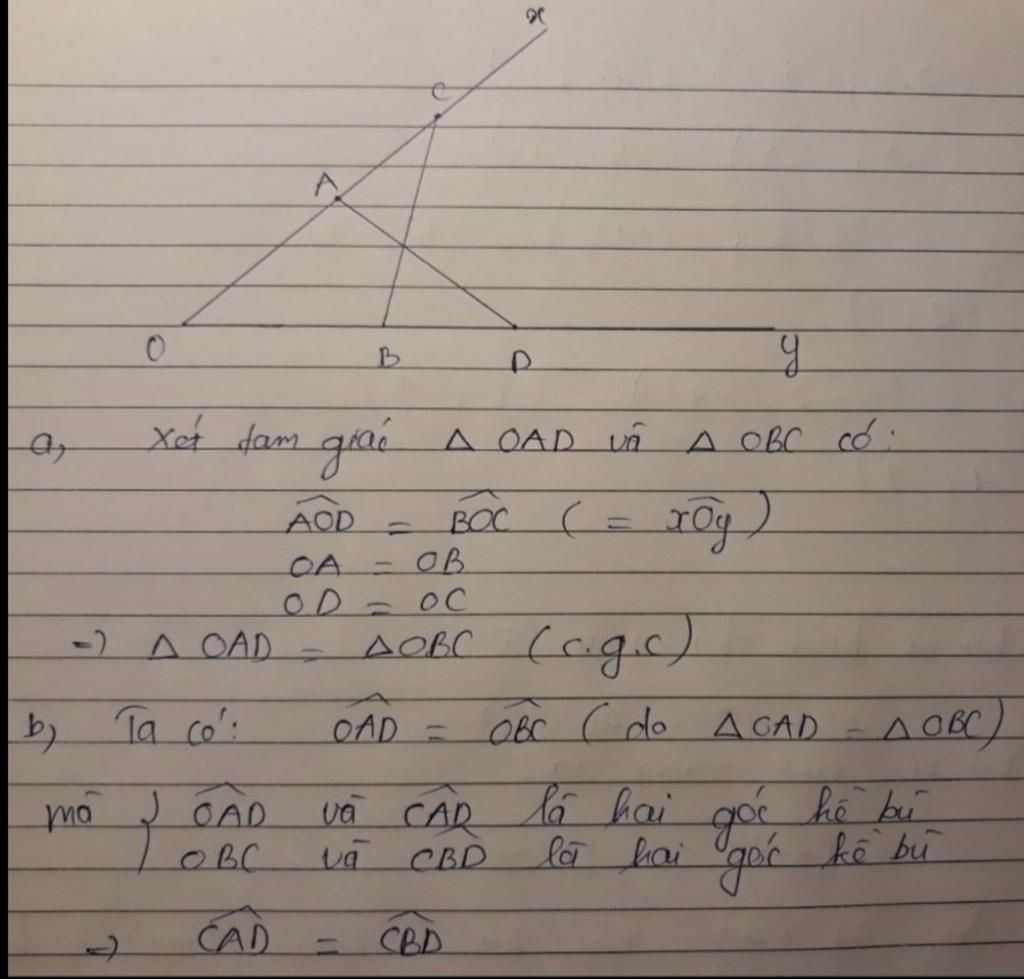 x
C
A
O B D y
a, Xét tam giác Δ OAD và Δ OBC có:
$\widehat{AOD}$ = $\widehat{BOC}$ ( = $\widehat{xOy}$ )
OA = OB
OD = OC
=) Δ OAD = Δ OBC (c.g.c)
b, Ta có: $\widehat{OAD}$ = $\widehat{OBC}$ ( do Δ OAD = Δ OBC)
mà } $\widehat{OAD}$ và $\widehat{CAD}$ là hai góc kề bù
OBC và $\widehat{CBD}$ là hai góc kề bù
=) $\widehat{CAD}$ = $\widehat{CBD}$